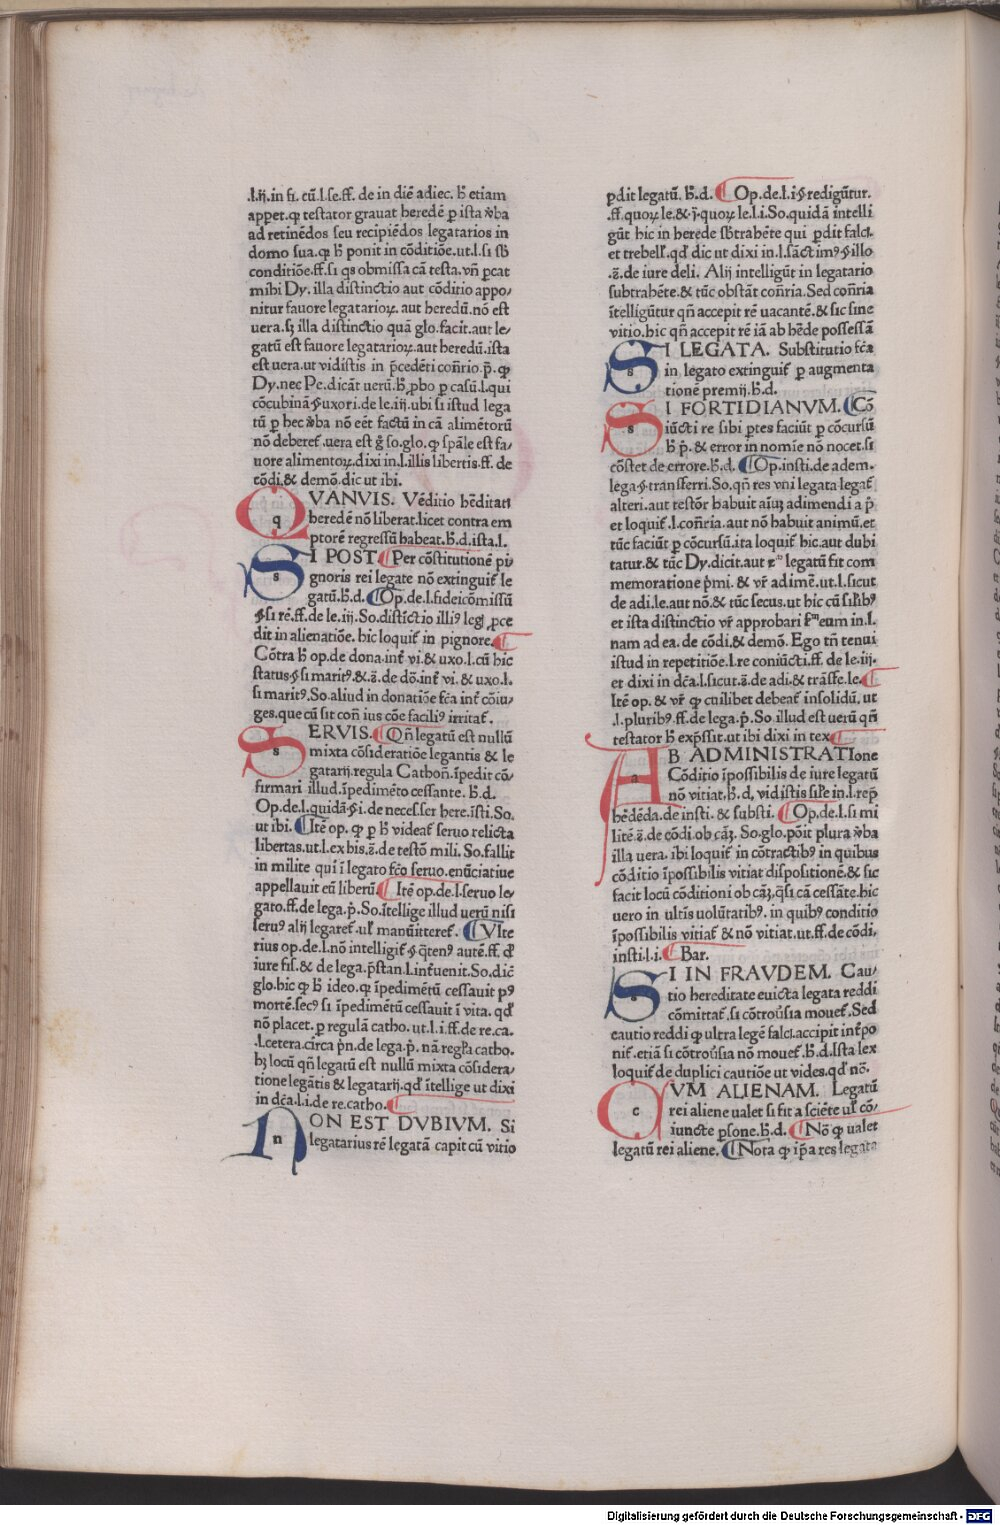 .l.ij.in fi. cū.l.se.ff. de in diē adiec. h̄ etiam
appet.ꝙ testator grauat heredē ꝑ ista v̄ba
ad retinēdos seu recipiēdos legatarios in
domo sua.ꝙ h̄ ponit in cōditiōe.ut.l.si sb̄
conditiōe.ff.si qs obmissa cā testa.vn̄ ꝑcat
mihi Dy. illa distinctio aut cōditio appo/
nitur fauore legatarioꝝ. aut heredū.nō est
uera.sꝫ illa distinctio quā glo.facit.aut le/
gatū est fauore legatarioꝝ.aut heredū.ista
est uera.ut vidistis in p̄cedēti con̄rio.p̄. ꝙ
Dy.nec Pe.dicāt uerū.h̄ ꝓbo ꝑ casū.l.qui
cōcubinā.§.uxori.de le.iij.ubi si istud lega
tū ꝑ hec v̄ba nō eēt factū in cā alimētorū
nō deberet᷑.uera est ḡ so.glo.ꝙ sp̄ale est fa/
uore alimentoꝝ.dixi in.l.illis libertis.ff. de
cōdi.& demō.dic ut ibi.
QVANVIS. Vēditio hēditati
heredē nō liberat.licet contra em
ptorē regressū habeat.h̄.d.ista.l.
SI POST. Per cōstitutionē pi/
gnoris rei legate nō extinguit᷑ le
gatū.h̄.d. Op.de.l.fideicōmissū
§.si rē.ff.de le.iij.So.distīctio illiꝰ legꝭ ꝓce
dit in alienatiōe. hic loquit᷑ in pignore.
Cōtra h̄ op.de dona.int᷑ vi.& uxo.l.cū hic
status.§.si maritꝰ.&.ā.de dō.int᷑ vi.& uxo.l.
si maritꝰ.So.aliud in donatiōe fc̄a int᷑ cōiu/
ges.que cū sit con̄ ius cōe faciliꝰ irritat᷑.
SERVIS. Qn̄ legatū est nullū
mixta cōsideratiōe legantis & le
gatarij.regula Cathon̄.īpedit cō/
firmari illud.īpedimēto cessante. h̄.d.
Op.de.l.quidā.§.i.de necesser here.īsti.So.
ut ibi. Itē op. ꝙ ꝑ h̄ videat᷑ seruo relicta
libertas.ut.l.ex his.ā.de testō mili. So.fallit
in milite qui ī legato fc̄o seruo.enūciatiue
appellauit eū liberū. Itē op.de.l.seruo le/
gato.ff.de lega.p̄.So.ītellige illud uerū nisi
seruꝰ alij legaret᷑.ul̄ manūitteret᷑. Vlte
rius op.de.l.nō intelligit᷑.§.q̄tenꝰ autē.ff. d̄
iure fis.& de lega.p̄stan.l.int᷑uenit.So.dic̄
glo.hic ꝙ h̄ ideo.ꝙ īpedimētū cessauit pꝰ
mortē.secꝰ si īpedimētū cessauit ī vita. qd̄
nō placet.ꝑ regulā catho.ut.l.i.ff.de re.ca.
.l.cetera.circa p̄n.de lega.p̄. nā regl̄a catho.
hꝫ locū qn̄ legatū est nullū mixta cōsidera/
tione legātis & legatarij.qd̄ ītellige ut dixi
in dc̄a.l.i.de re.catho.
NON EST DVBIVM. Si
legatarius rē legatā capit cū vitio
ꝑdit legatū. h̄.d. Op.de.l.i.§.redigūtur.
.ff.quoꝝ le.&.j̄.quoꝝ le.l.i.So.quidā intelli
gūt hic in herede sb̄trahēte qui ꝑdit falci.
et trebell̄.qd̄ dic ut dixi in.l.sāctimꝰ.§.illo
.ā.de iure deli. Alij intelligūt in legatario
subtrahēte.& tūc obstāt con̄ria.Sed con̄ria
ītelligūtur qn̄ accepit rē uacantē.& sic sine
vitio.hic qn̄ accepit rē iā ab hēde possessā
SI LEGATA. Substitutio fc̄a
in legato extinguit᷑ ꝑ augmenta
tionē premij.h̄.d.
SI FORTIDIANVM. Cō
iūcti re sibi ꝑtes faciūt ꝑ cōcursū
h̄ p̄. & error in nomīe nō nocet.si
cōstet de errore.h̄.d. Op.insti.de adem.
lega.§.transferri.So.qn̄ res vni legata legat᷑
alteri.aut testōr habuit aīuꝫ adimendi a p̄
et loquit᷑.l.con̄ria.aut nō habuit animū.et
tūc faciūt ꝑ cōcursū.ita loquit᷑ hic.aut dubi
tatur.& tūc Dy.dicit.aut legatū fit com
memoratione p̄mi. & vr̄ adimē.ut.l.sicut
de adi.le.aut nō.& tūc secus.ut hic cū sil̄ibꝰ
et ista distinctio vr̄ approbari eum in.l.
nam ad ea. de cōdi.& demō. Ego tn̄ tenui
istud in repetitiōe.l.re coniūcti.ff. de le.iij.
et dixi in dc̄a.l.sicut.ā.de adi.& trāsfe.le.
Itē op. & vr̄ ꝙ cuilibet debeat᷑ insolidū. ut
.l.pluribꝰ.ff.de lega.p̄. So.illud est uerū qn̄
testator h̄ exp̄ssit.ut ibi dixi in tex.
AB ADMINISTRATIone
Cōditio īpossibilis de iure legatū
nō vitiat.h̄.d. vidistis sil̄e in.l.rep̄
hēdēda.de insti. & substi. Op.de.l.si mi
litē.ā.de cōdi.ob cāꝫ. So.glo.pōit plura v̄ba
illa uera. ibi loquit᷑ in cōtractibꝰ in quibus
cōditio īpossibilis vitiat dispositionē.& sic
facit locū cōditioni ob cāꝫ.q̄si cā cessāte.hic
uero in ultīs uolūtatibꝰ. in quibꝰ conditio
īpossibilis vitiat᷑ & nō vitiat.ut.ff.de cōdi.
insti.l.i. Bar.
SI IN FRAVDEM. Cau/
tio hereditate euicta legata reddi
cōmittat᷑.si cōtrou̇sia mouet᷑.Sed
cautio reddi ꝙ ultra legē falci.accipit int᷑po
nit᷑.etiā si cōtrou̇sia nō mouet᷑.h̄.d.Ista lex
loquit᷑ de duplici cautiōe ut vides.qd̄ nō.
CVM ALIENAM. Legatū
rei aliene ualet si fit a sciēte ul̄ cō/
iuncte ꝑsone.h̄.d. Nō ꝙ ualet
legatū rei aliene. Nota ꝙ īp̄a res legata
Digitalisierung gefördert durch die Deutsche Forschungsgemeinschaft - DFG